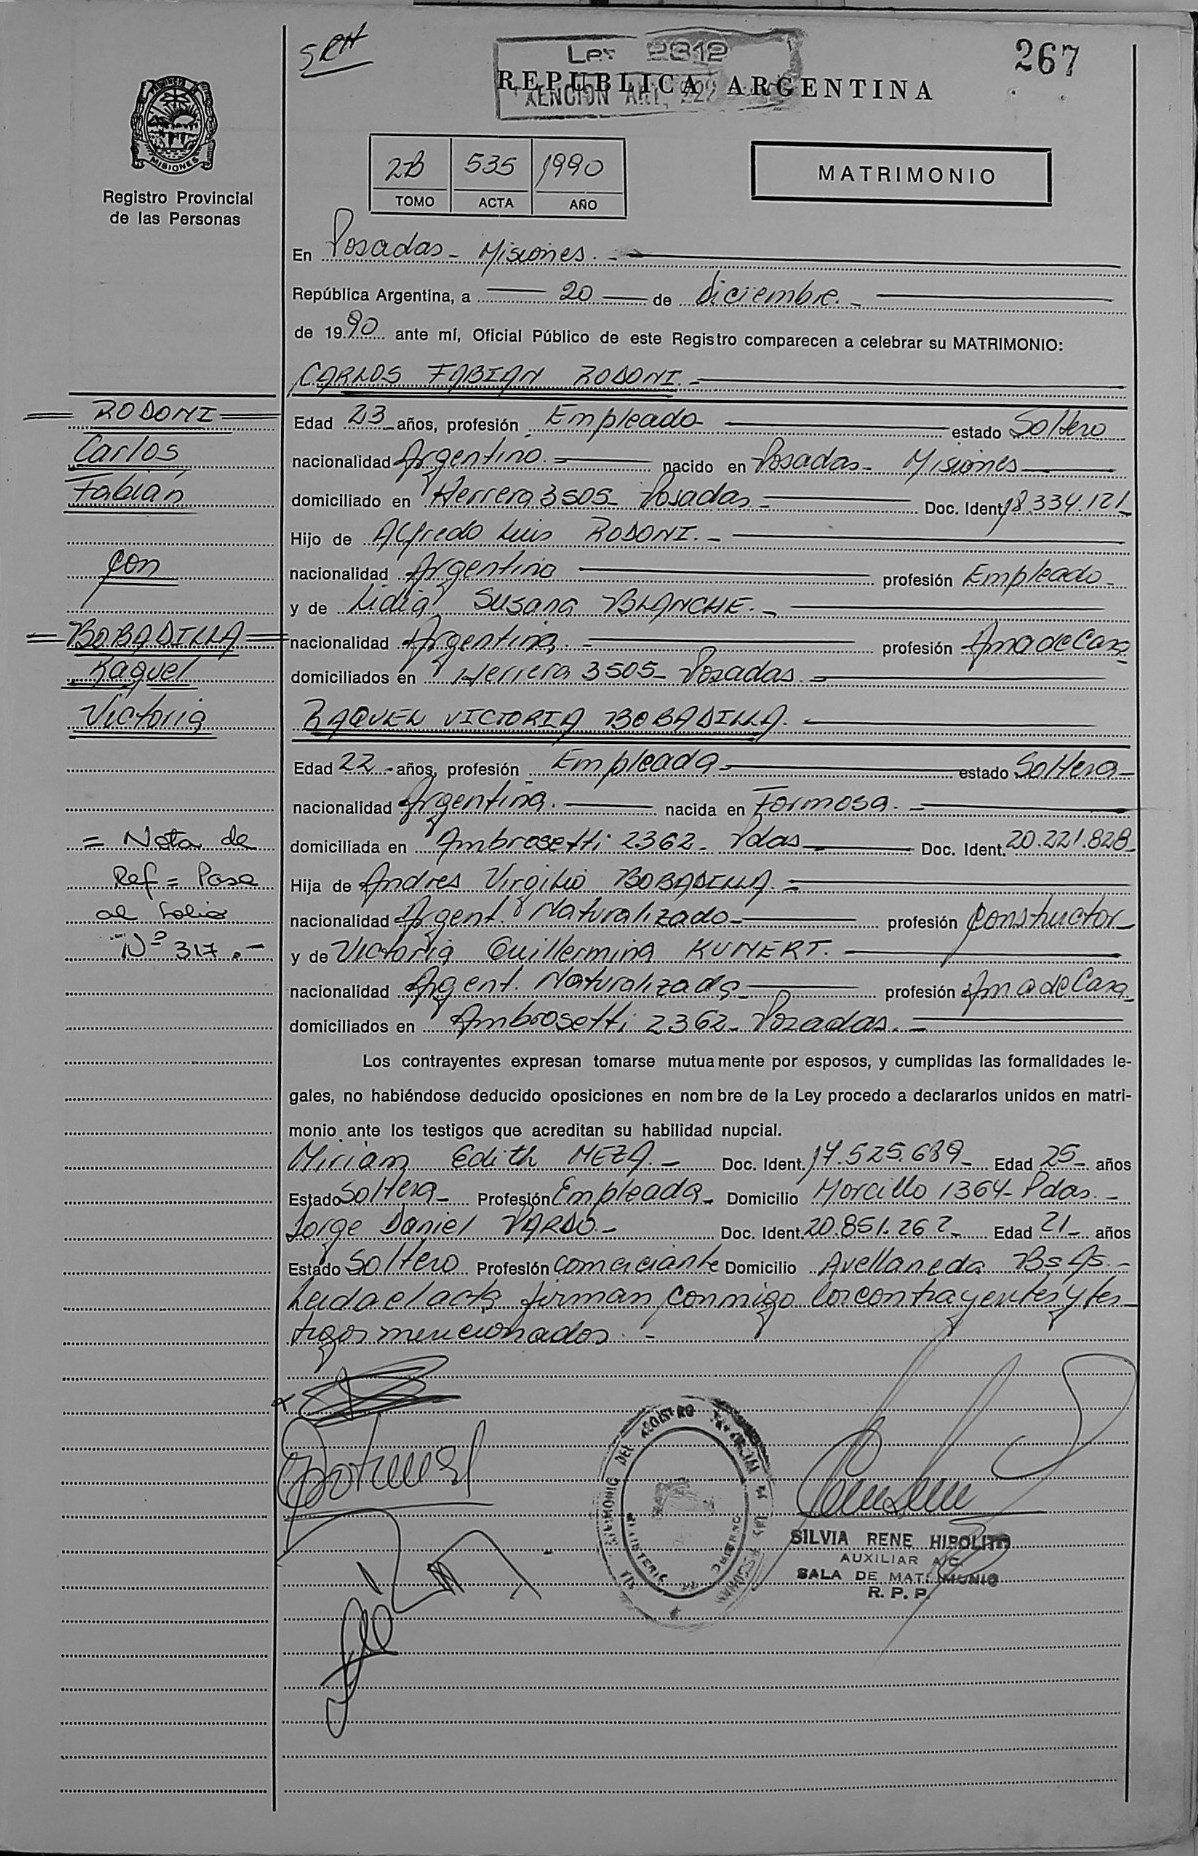 SRH
Ley 2312
EXENCION ART. 222
267
REPUBLICA ARGENTINA
MISIONES
Registro Provincial
de las Personas
2B 535 1990
TOMO ACTA AÑO
MATRIMONIO
En Posadas - Misiones.-
República Argentina, a 20 de Diciembre.-
de 1990 ante mí, Oficial Público de este Registro comparecen a celebrar su MATRIMONIO:
CARLOS FABIAN RODONI.-
= RODONI =
Carlos
Fabián
con
= BOBADILLA =
Raquel
Victoria
= Nota de
Ref = Pase
al folio
Nº 317.-
Edad 23 años, profesión Empleado estado Soltero
nacionalidad Argentino.- nacido en Posadas - Misiones
domiciliado en Herrera 3505 - Posadas - Doc. Ident. 18.334.121
Hijo de Alfredo Luis RODONI.-
nacionalidad Argentino profesión Empleado-
y de Lidia Susana BLANCHE.-
nacionalidad Argentina.- profesión Ama de Casa
domiciliados en Herrera 3505 - Posadas.-
RAQUEL VICTORIA BOBADILLA.-
Edad 22 - años, profesión Empleada estado Soltera-
nacionalidad Argentina.- nacida en Formosa.-
domiciliada en Ambrosetti 2362 - Pdas Doc. Ident. 20.221.828
Hija de Andres Virgilio BOBADILLA.-
nacionalidad Argent. Naturalizado- profesión Constructor-
y de Victoria Guillermina KUNERT.
nacionalidad Argent. Naturalizada- profesión Ama de Casa
domiciliados en Ambrosetti 2362 - Posadas.-
Los contrayentes expresan tomarse mutuamente por esposos, y cumplidas las formalidades le-
gales, no habiéndose deducido oposiciones en nombre de la Ley procedo a declararlos unidos en matri-
monio ante los testigos que acreditan su habilidad nupcial.
Mirian Edith MEZA.- Doc. Ident. 17.525.689- Edad 25- años
Estado Soltera- Profesión Empleada- Domicilio Morcillo 1364 - Pdas.-
Jorge Daniel PARDO.- Doc. Ident. 20.851.262- Edad 21- años
Estado Soltero Profesión comerciante Domicilio Avellaneda Bs As.-
Leida el acta firman conmigo los contrayentes y tes-
tigos mencionados.-
SILVIA RENE HIPOLITO
AUXILIAR A/C
SALA DE MATRIMONIO
R. P. P.